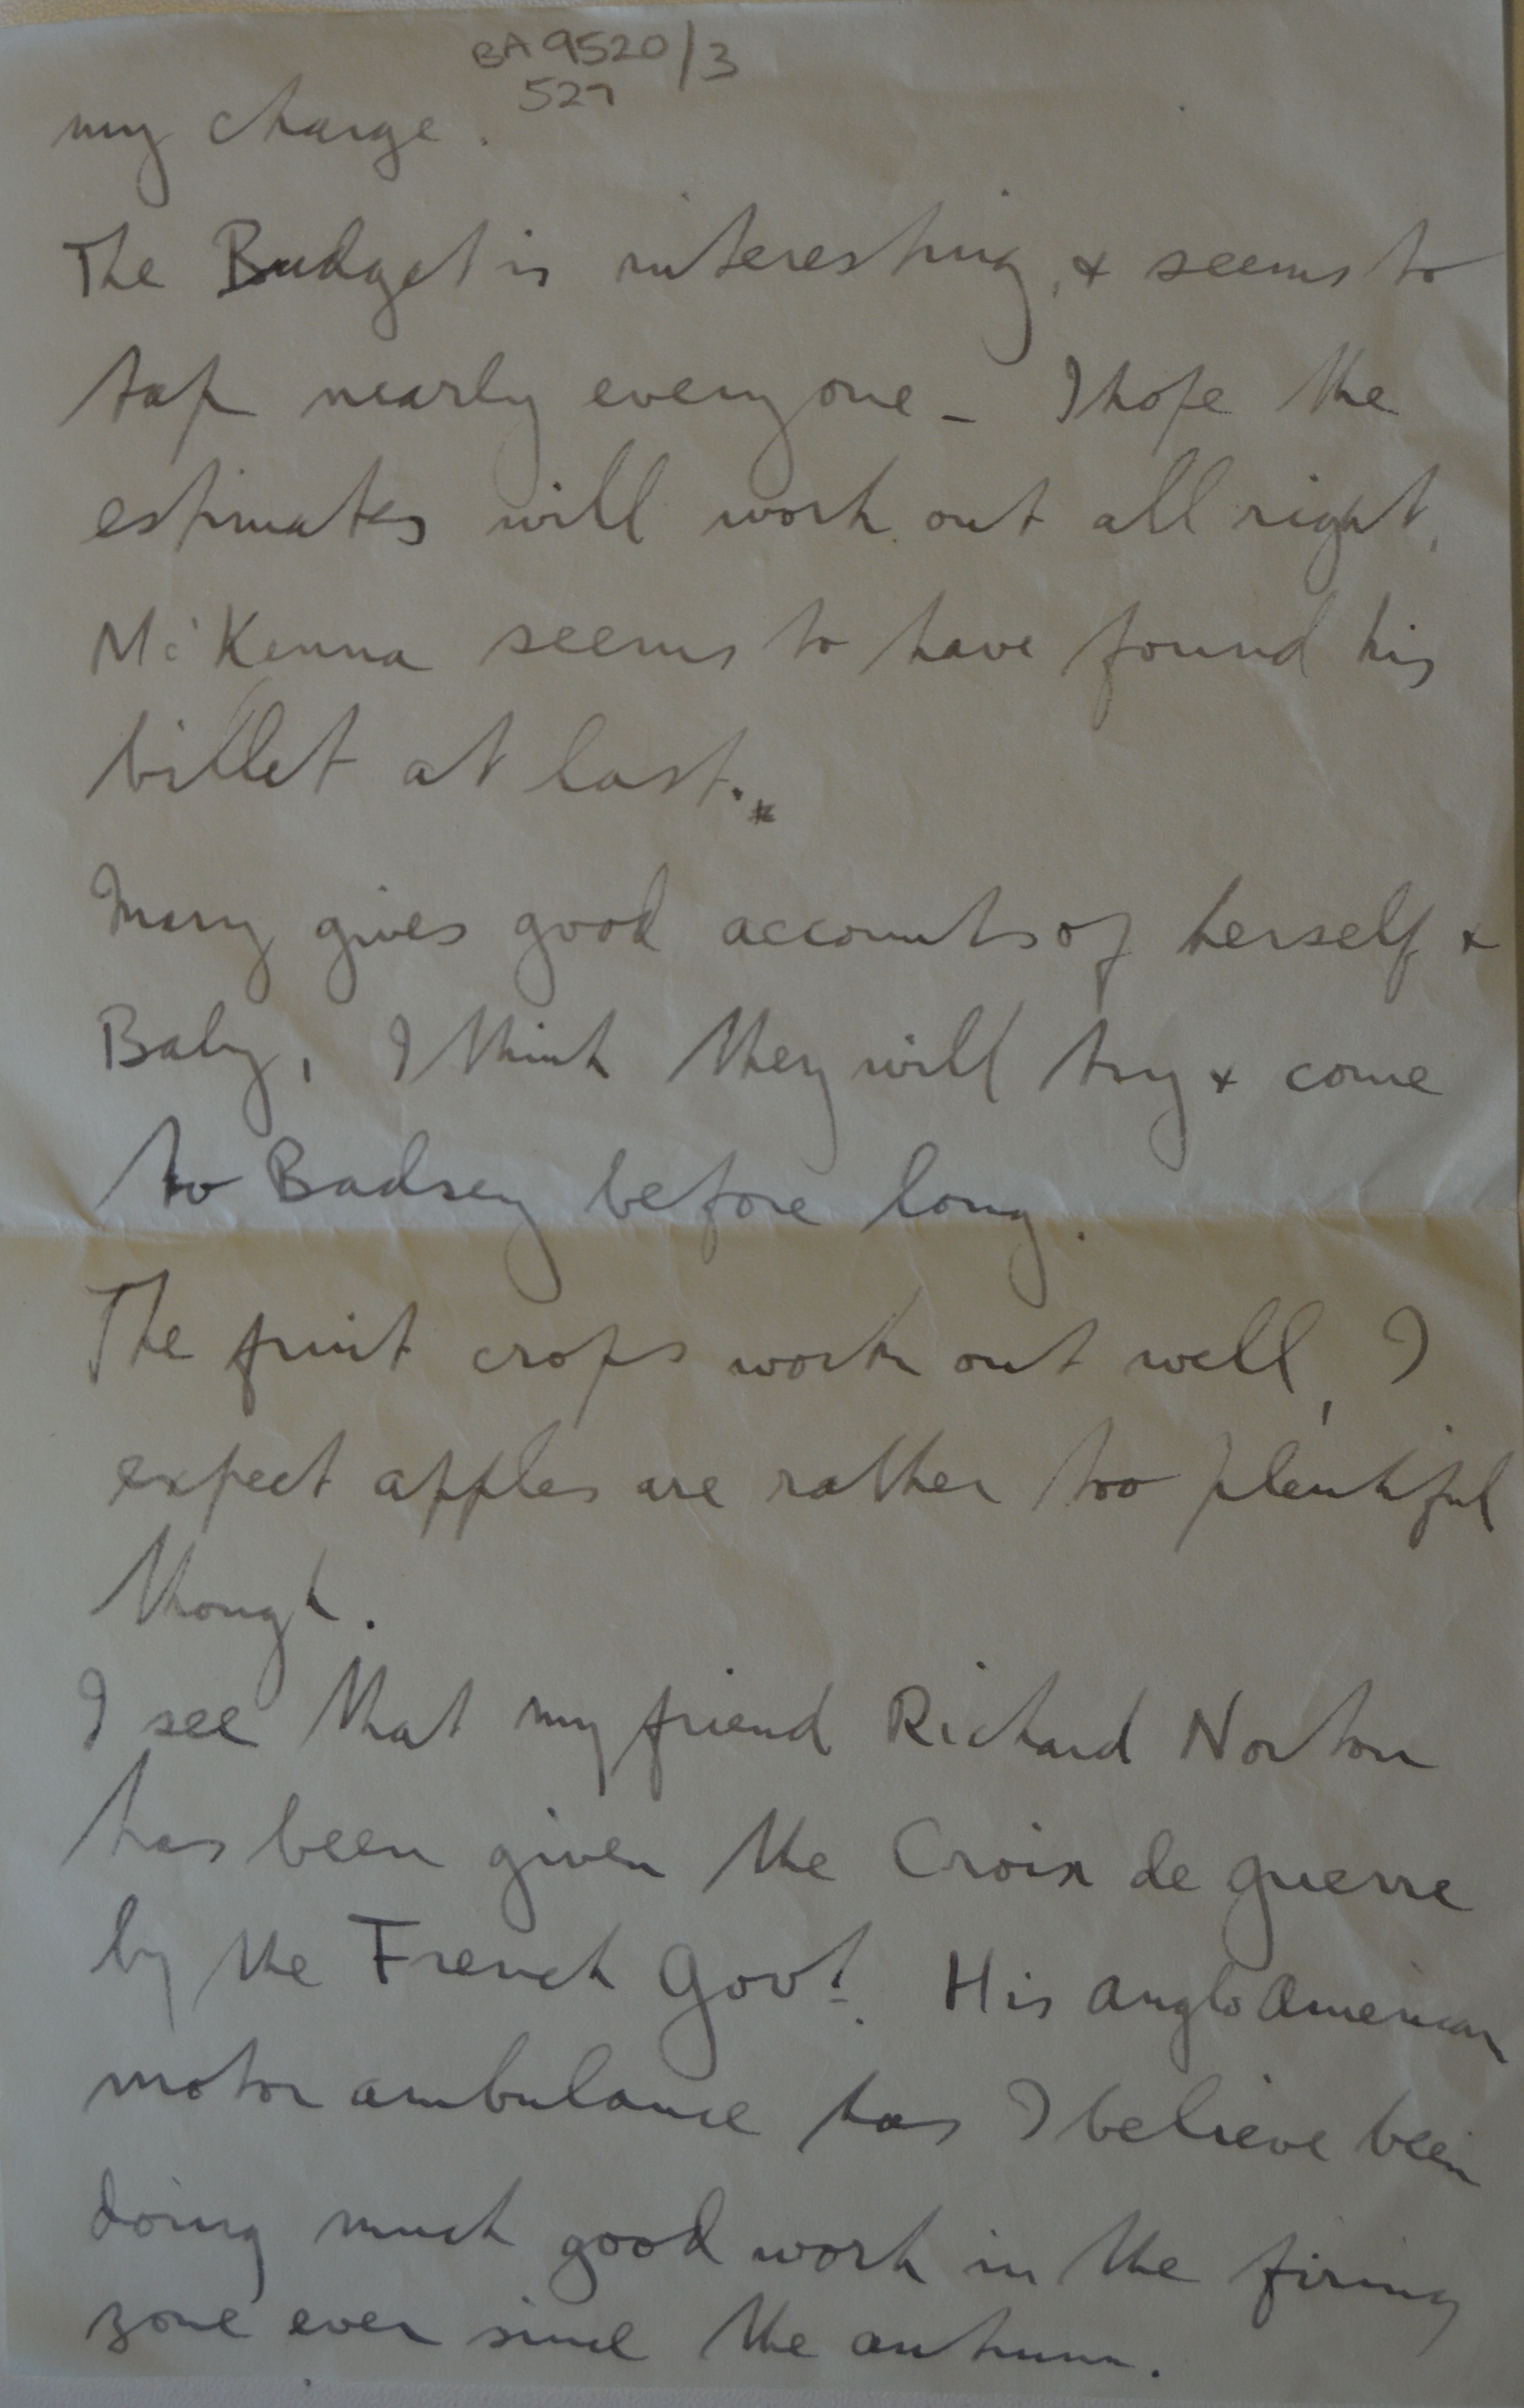 BA 9520/3
527
my charge.
The Budget is interesting, & seems to
tap nearly everyone - I hope the
estimates will work out all right.
McKenna seems to have found his
billet at last.*
Mary gives good accounts of herself &
Baby, I think they will try & come
to Badsey before long.
The fruit crops work out well, I
expect apples are rather too plentiful
though.
I see that my friend Richard Norton
has been given the Croix de guerre
by the French Govt. His Anglo American
motor ambulance has I believe been
doing much good work in the firing
zone ever since the autumn.